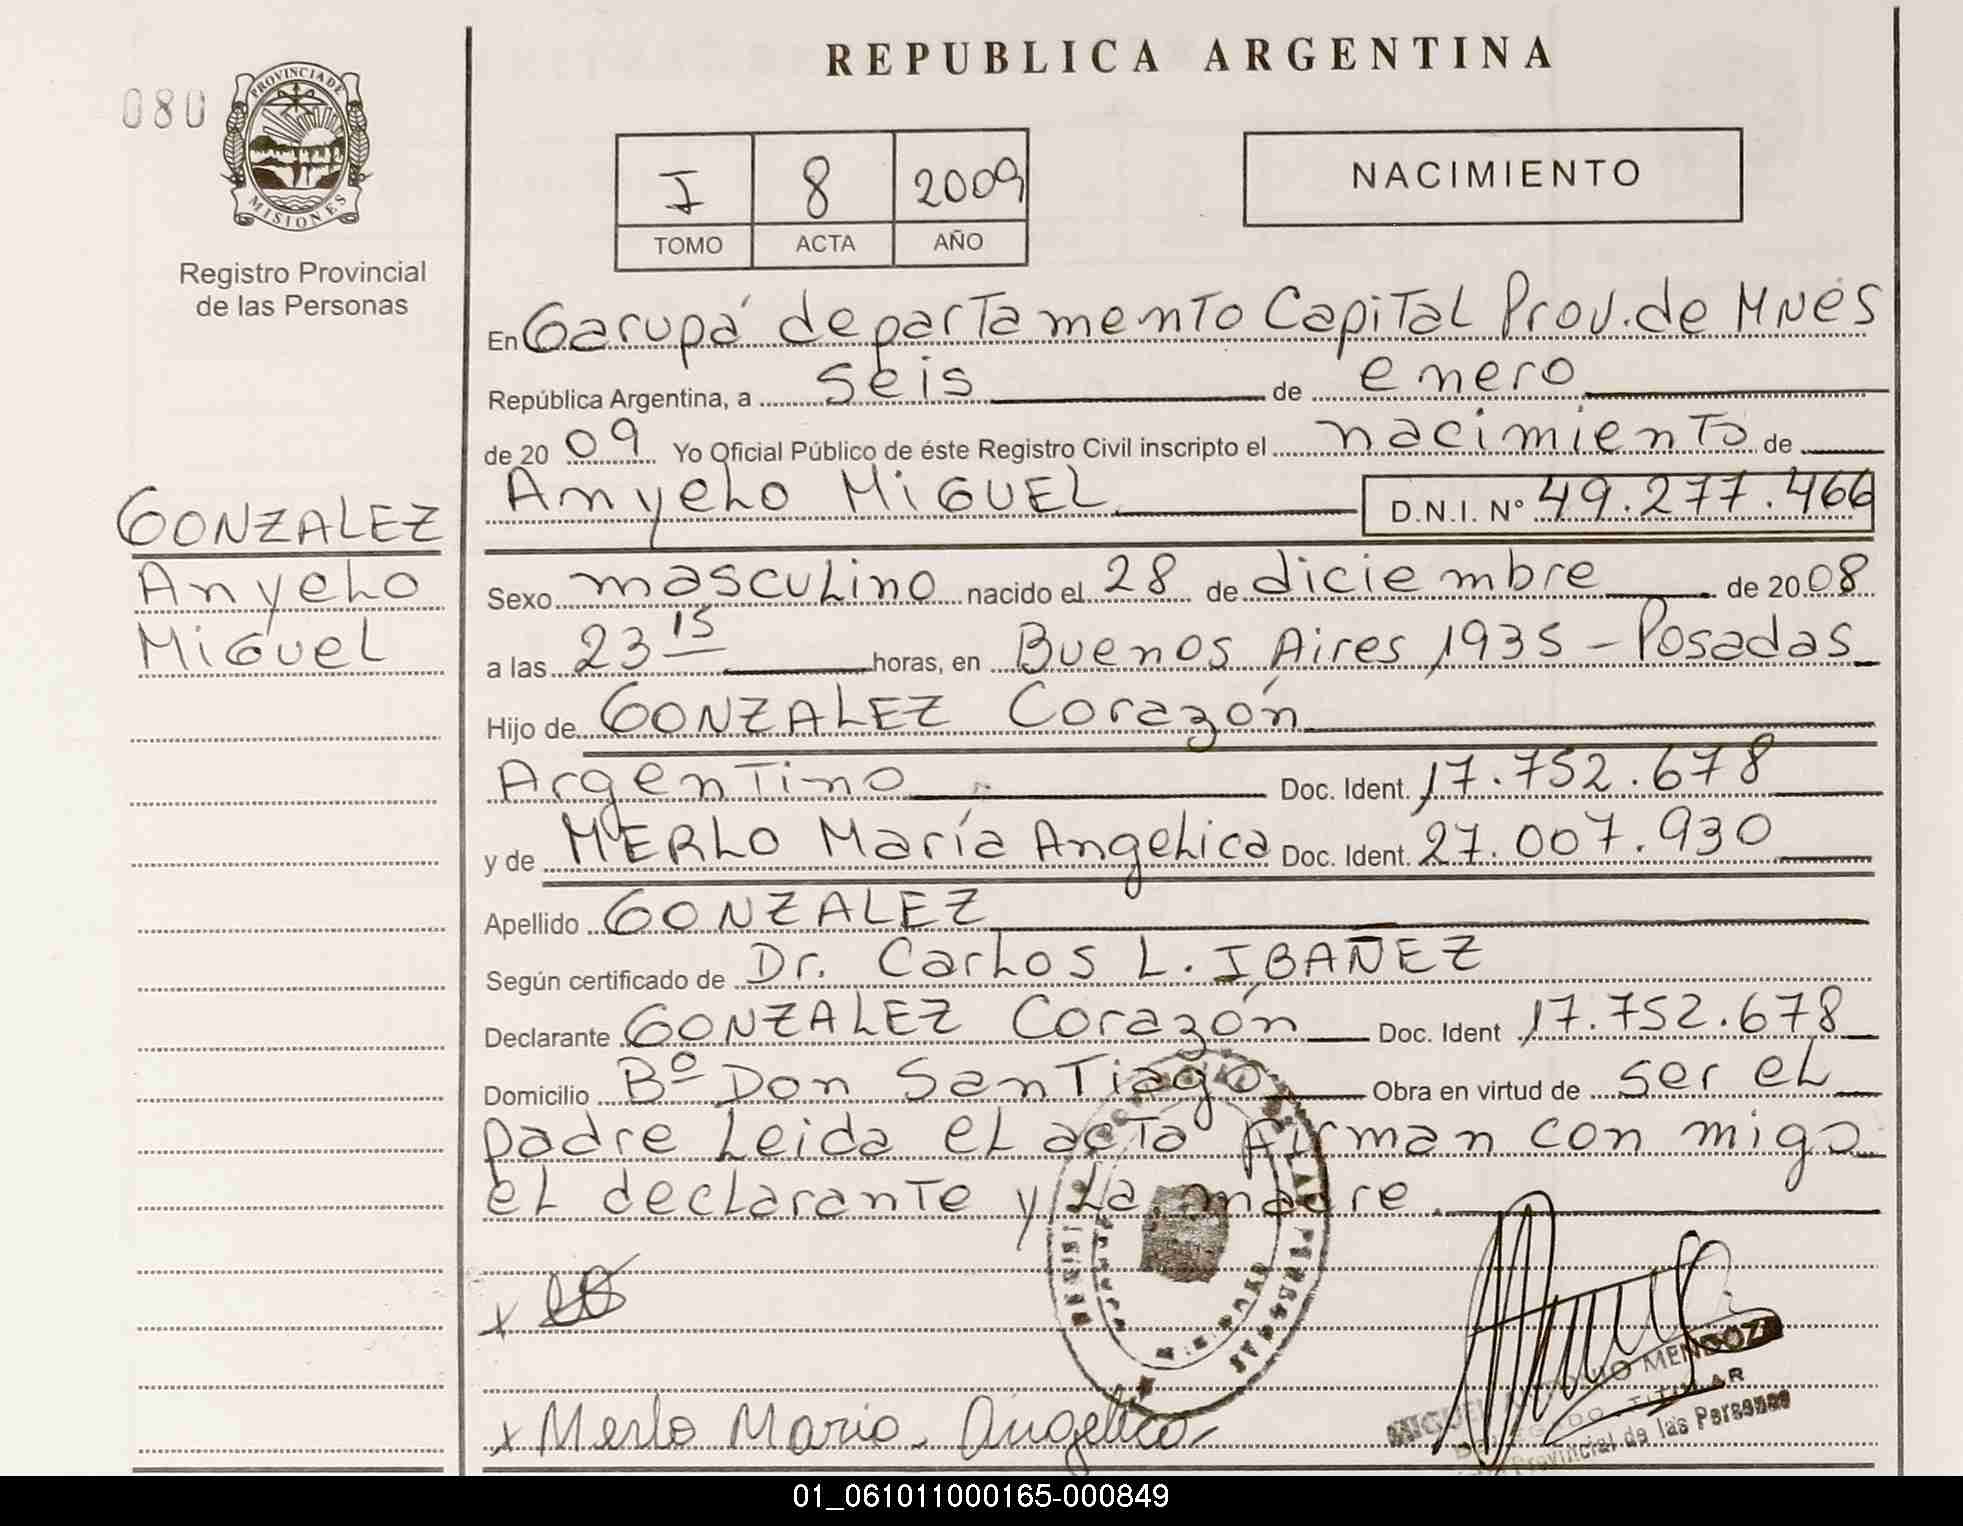 REPUBLICA ARGENTINA
080
PROVINCIA DE
MISIONES
Registro Provincial
de las Personas
I 8 2009
TOMO ACTA AÑO
NACIMIENTO
En Garupá departamento Capital Prov. de Mnes
República Argentina, a seis de enero
de 2009 Yo Oficial Público de éste Registro Civil inscripto el nacimiento de
Anyelo MIGUEL D.N.I. Nº 49.277.466
GONZALEZ
Anyelo
Miguel
Sexo masculino nacido el 28 de diciembre de 2008
a las 23 15 horas, en Buenos Aires 1935 - Posadas
Hijo de GONZALEZ Corazón
Argentino Doc. Ident. 17.752.678
y de MERLO María Angelica Doc. Ident. 27.007.930
Apellido GONZALEZ
Según certificado de Dr. Carlos L. IBAÑEZ
Declarante GONZALEZ Corazón Doc. Ident 17.752.678
Domicilio Bº Don Santiago Obra en virtud de ser el
padre Leida el acta firman con migo
el declarante y la madre.
x
x Merlo Maria Angelica
MIGUEL ANTONIO MENDOZA
DELEGADO TITULAR
Provincial de las Personas
01_061011000165-000849